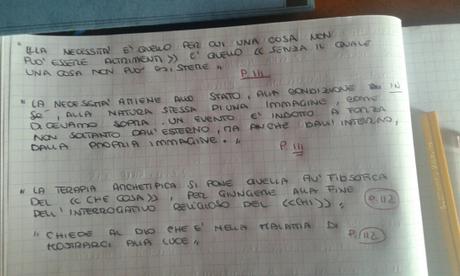 "«LA NECESSITÀ E' QUELLO PER CUI UNA COSA NON
PUO' ESSERE ALTRIMENTI» E' QUELLO «SENZA IL QUALE
UNA COSA NON PUO' ESISTERE"
P. 111
"LA NECESSITA' ATTIENE ALLO STATO, ALLA CONDIZIONE IN
SE', ALLA NATURA STESSA DI UNA IMMAGINE, COME
DICEVAMO SOPRA. UN EVENTO E' INDOTTO A FORZA
NON SOLTANTO DALL'ESTERNO, MA ANCHE DALL'INTERNO,
DALLA PROPRIA IMMAGINE."
P. 111
"LA TERAPIA ARCHETIPICA SI PONE QUELLA PIU' FILOSOFICA
DEL «CHE COSA», PER GIUNGERE ALLA FINE
DELL'INTERROGATIVO RELIGIOSO DEL «CHI»"
P. 112
"CHIEDE AL DIO CHE E' NELLA MALATTIA DI
MOSTRARCI ALLA LUCE"
P. 112